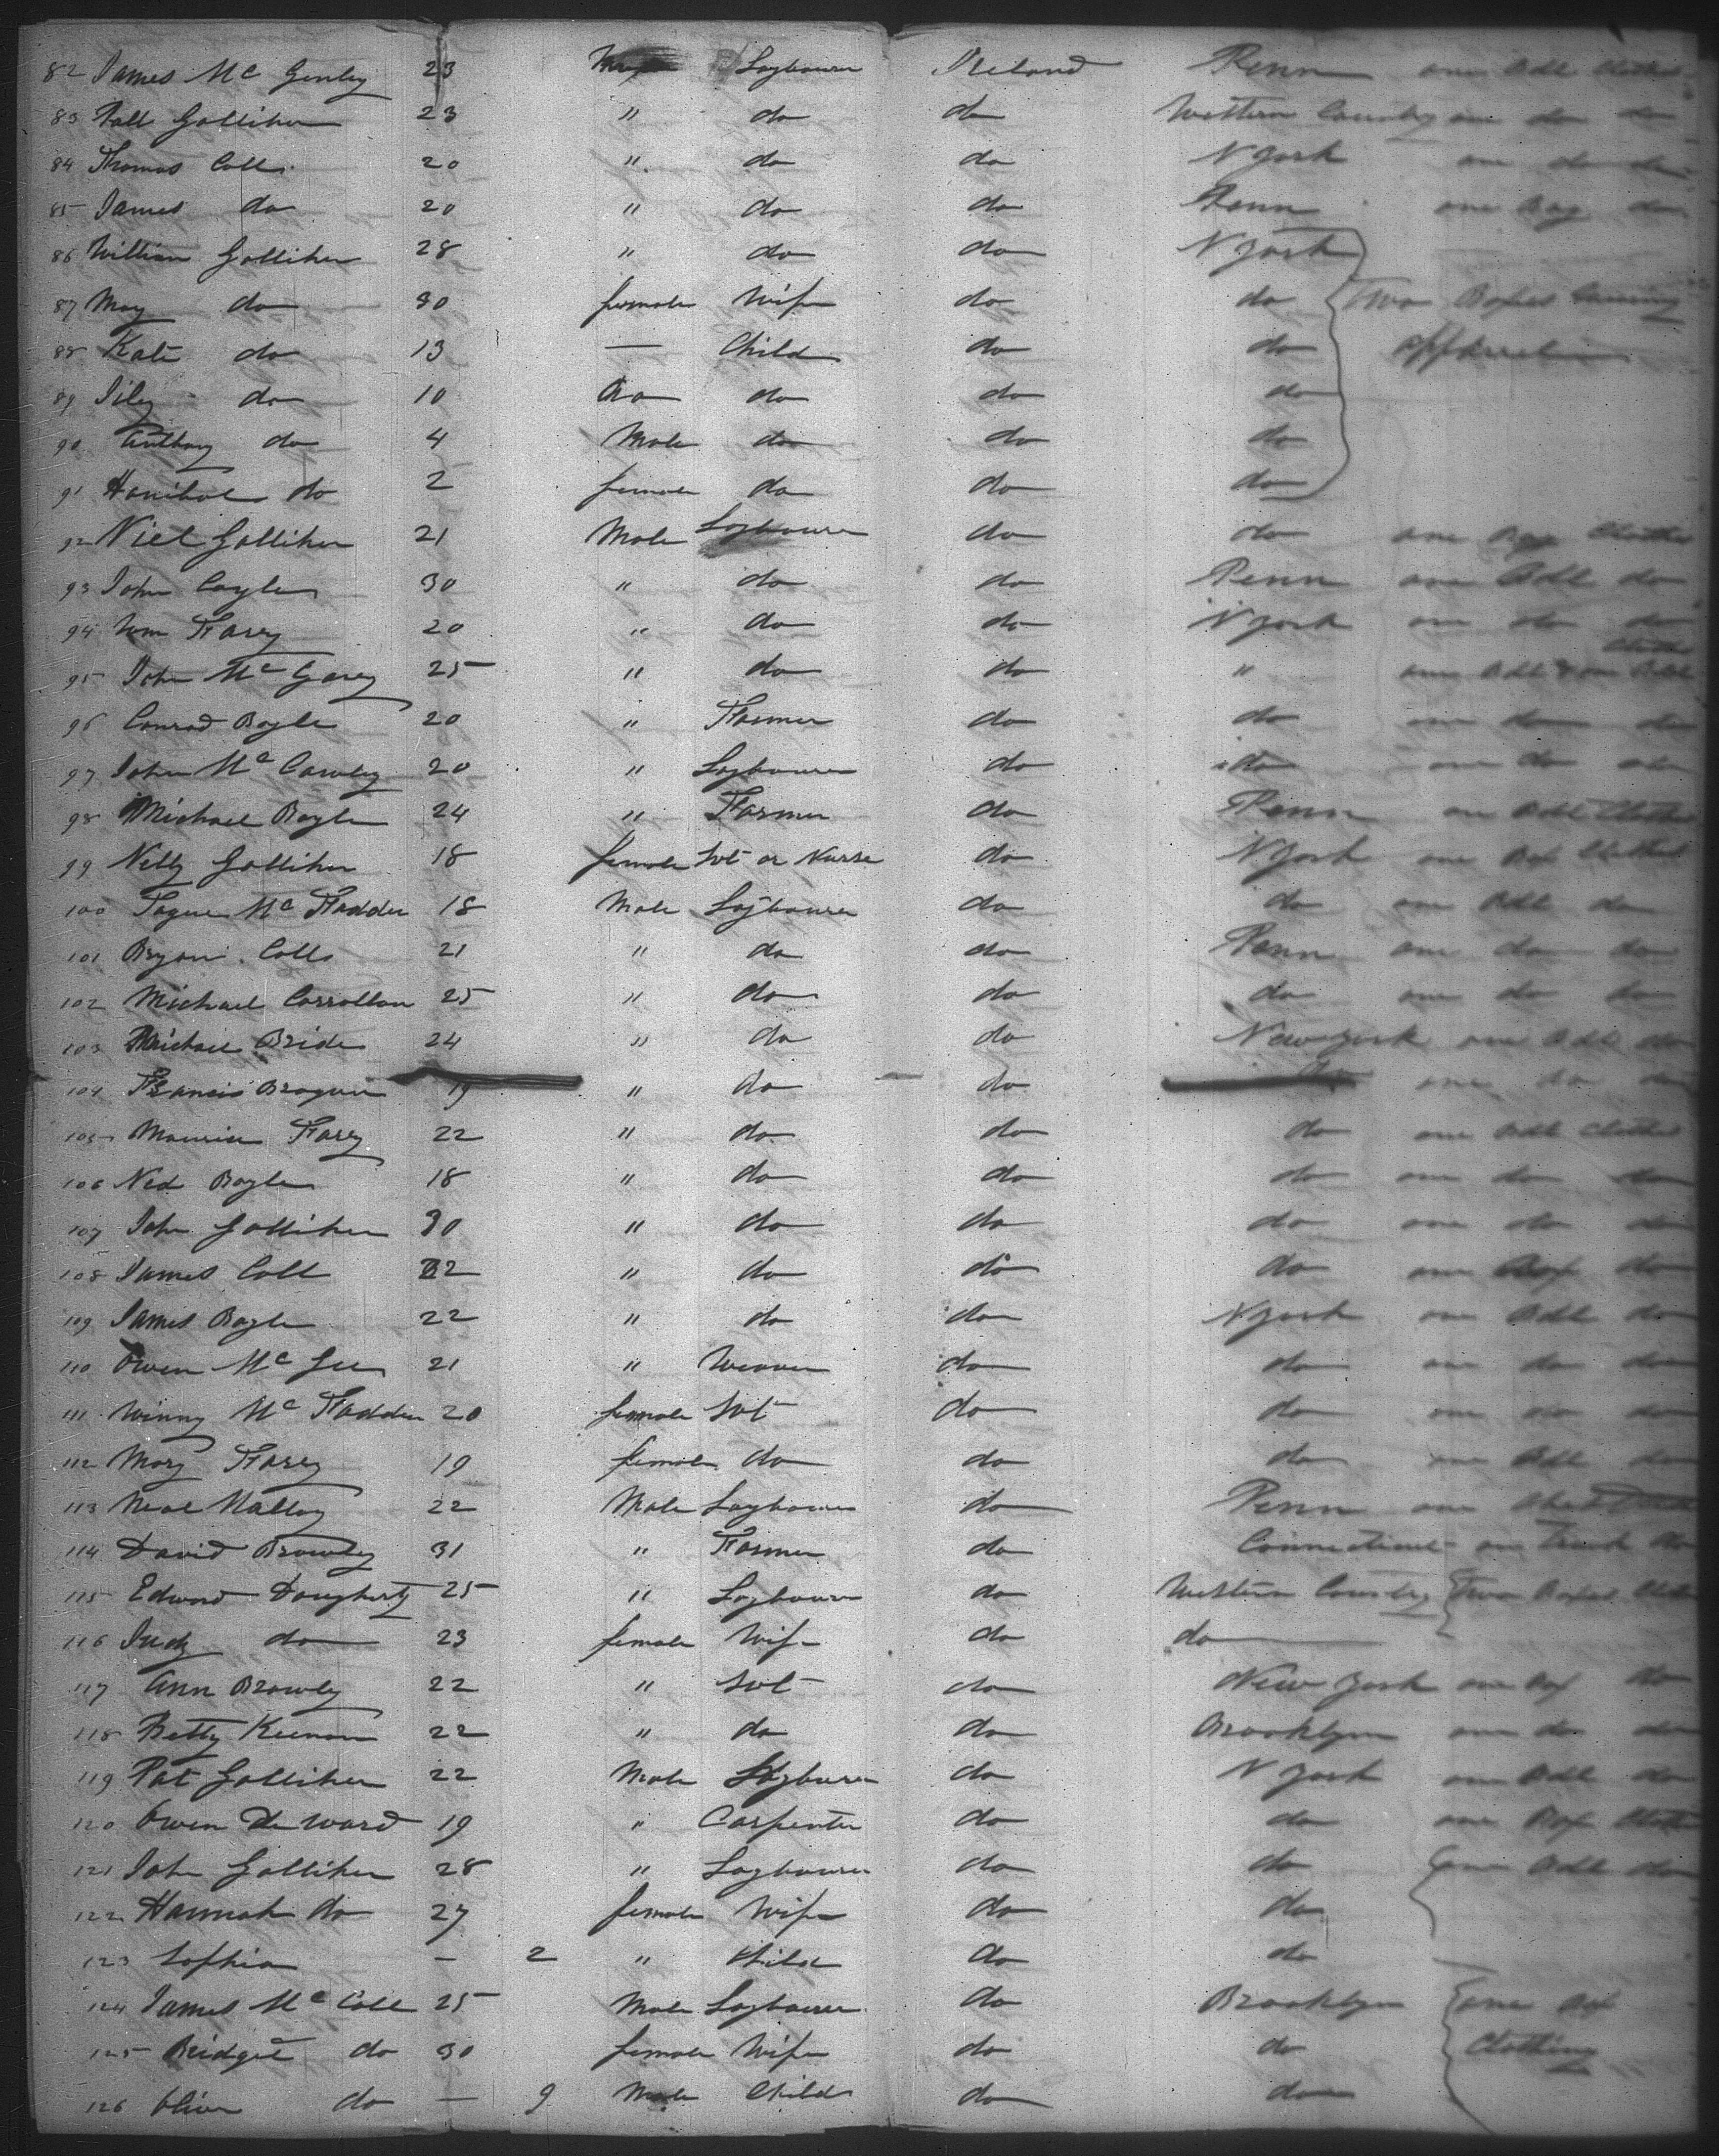 82 James Mc Genley 23 Male Laybourer Ireland Penn one Bdl Clothes
83 Patt Galliher 23 " do do Western Country one do do
84 Thomas Coll 20 " do do N York one do do
85 James do 20 " do do Penn one Bag do
86 William Galliher 28 " do do N York
87 May do 30 female Wife do do Two Boxes Containing
88 Kate do 13 — Child do do apparel
89 Siley do 10 do do do do
90 Anthony do 4 Male do do do
91 Hanibal do 2 female do do do
92 Niel Galliher 21 Male Laybourer do do one Clothes
93 John Cayle 30 " do do Penn one Bdl do
94 Wm Farey 20 " do do N York one do do
95 John Mc Garey 25 " do do " one Bdl & one Bdl Clothes
96 Conrad Boyle 20 " Farmer do do one do do
97 John Mc Cawley 20 " Laybourer do do one do do
98 Michael Boyle 24 " Farmer do Penn one Bdl Clothes
99 Nelly Galliher 18 female Svt or Nurse do N York one Box Clothes
100 Tague Mc Fadden 18 Male Laybourer do do one Bdl do
101 Bryan Coll 21 " do do Penn one do do
102 Michael Carrollan 25 " do do do one do do
103 Michael Bride 24 " do do New York one Bdl do
104 Francis Brogan 19 " do do do one do do
105 Maurice Farey 22 " do do do one Bdl Clothes
106 Ned Boyle 18 " do do do one do do
107 John Galliher 30 " do do do one do do
108 James Coll 22 " do do do one Box do
109 James Boyle 22 " do do N York one Bdl do
110 Owen Mc Gee 21 " Weaver do do one do do
111 Winny Mc Fadden 20 female Svt do do one do do
112 Mary Farey 19 female do do do one Bdl do
113 Neal Malloy 22 Male Laybourer do Penn one
114 David Browley 31 " Farmer do Connecticut one Trunk do
115 Edward Dougherty 25 " Laybourer do Western Country Two Boxes Clothes
116 Judy do 23 female Wife do do
117 Ann Browley 22 " Svt do New York one Box do
118 Betty Keenan 22 " do do Brooklyn one do do
119 Pat Galliher 22 Male Laybourer do N York one Bdl do
120 Owen De Ward 19 " Carpenter do do one Box Clothes
121 John Galliher 28 " Laybourer do do one Bdl do
122 Hannah do 27 female Wife do do
123 Sophia — 2 " Child do do
124 James Mc Coll 25 Male Laybourer do Brooklyn one Box
125 Bridget do 30 female Wife do do Clothing
126 Oliver do — 9 Male Child do do